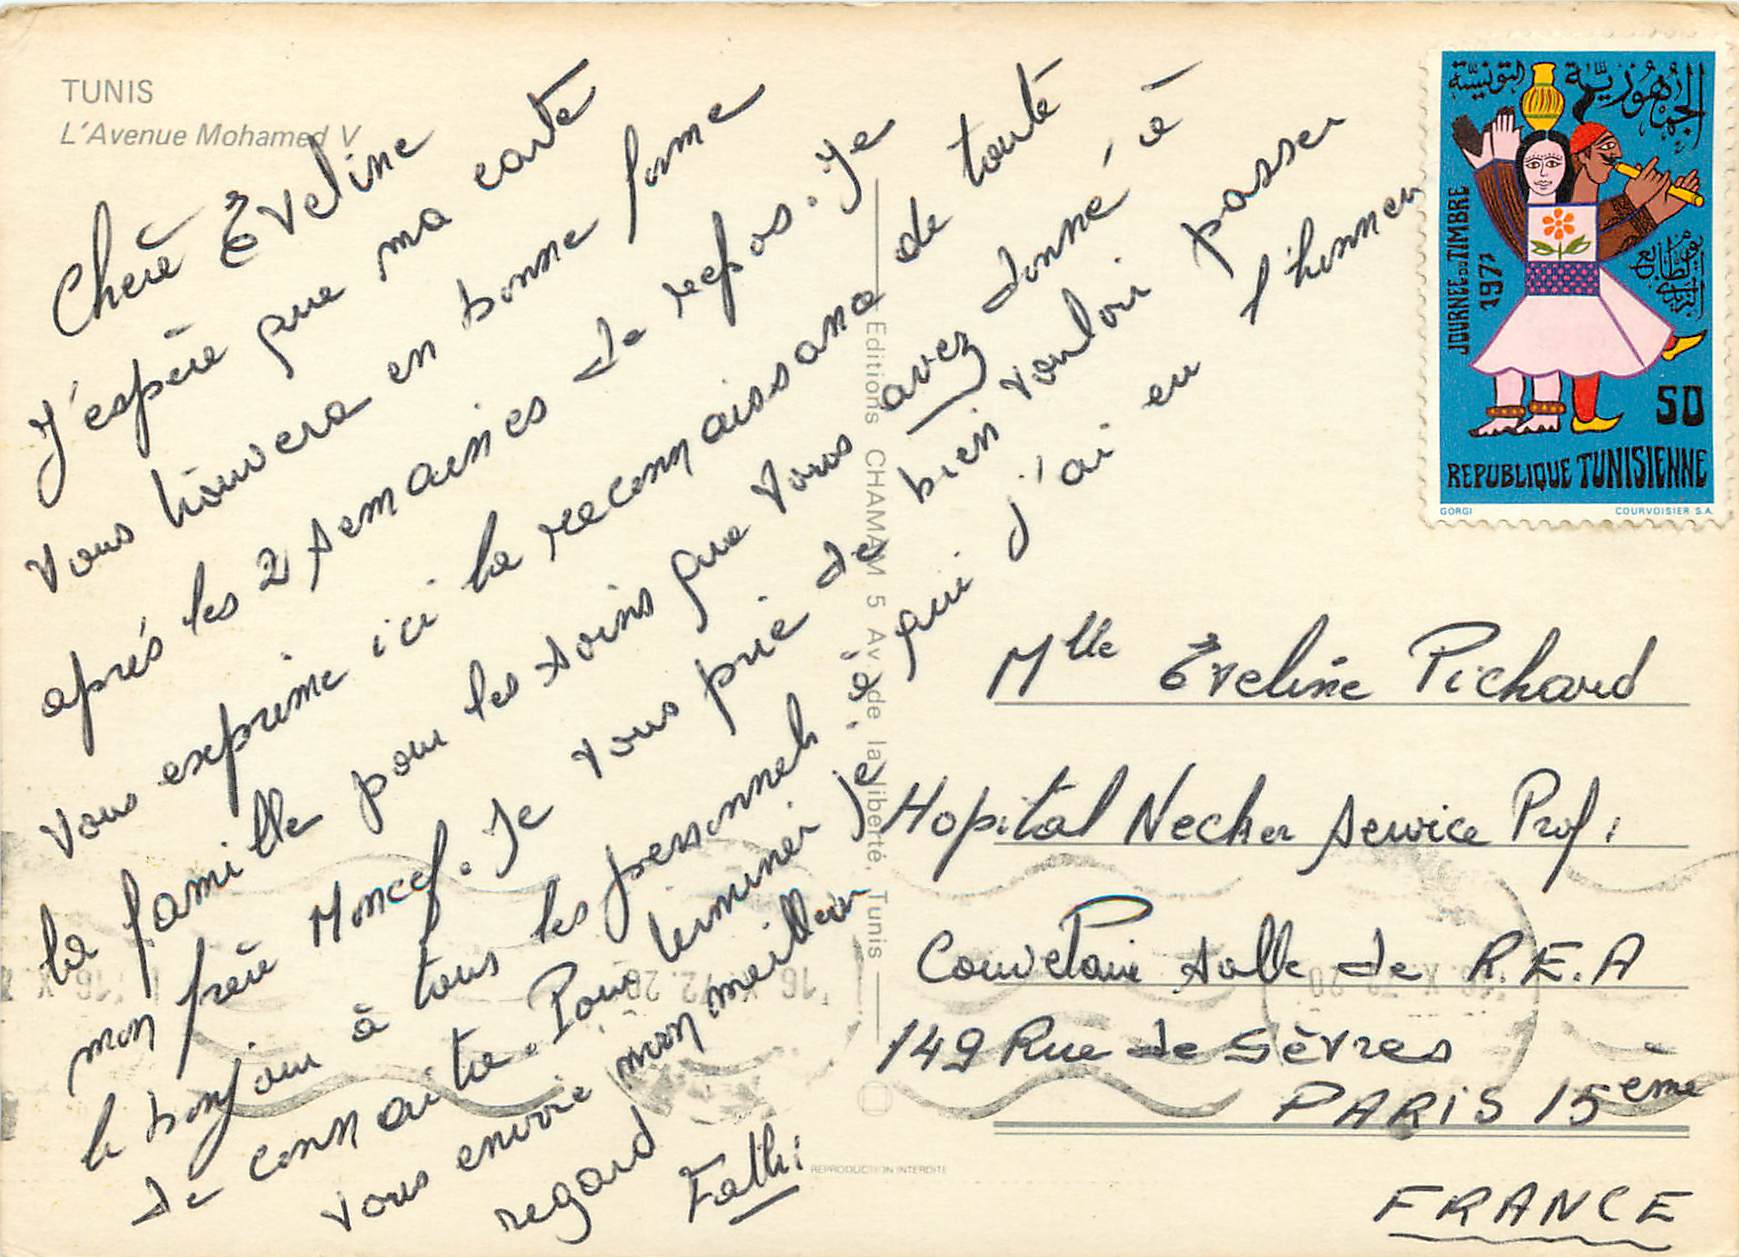 TUNIS
L'Avenue Mohamed V
Chère Eveline
J'espère que ma carte
vous trouvera en bonne forme
après les 2 semaines de repos. Je
vous exprime ici la reconnaissance de toute
la famille pour les soins que vous avez donné à
mon frère Moncef. Je vous prie de bien vouloir passer
le bonjour à tous les personnels à qui j'ai eu l'honneur
de connaitre. Pour terminer je
vous envoie mon meilleur
regard
Fathi
Editions CHAMAM 5 Av. de la liberté, Tunis
REPRODUCTION INTERDITE
الجمهورية التونسية
يوم الطابع البريدي
JOURNEE DU TIMBRE
1971
50
REPUBLIQUE TUNISIENNE
GORGI
COURVOISIER S.A.
Mlle Eveline Pichard
Hopital Necker service Prof.
Couvelaire salle de R.E.A
149 Rue de Sèvres
PARIS 15ème
FRANCE